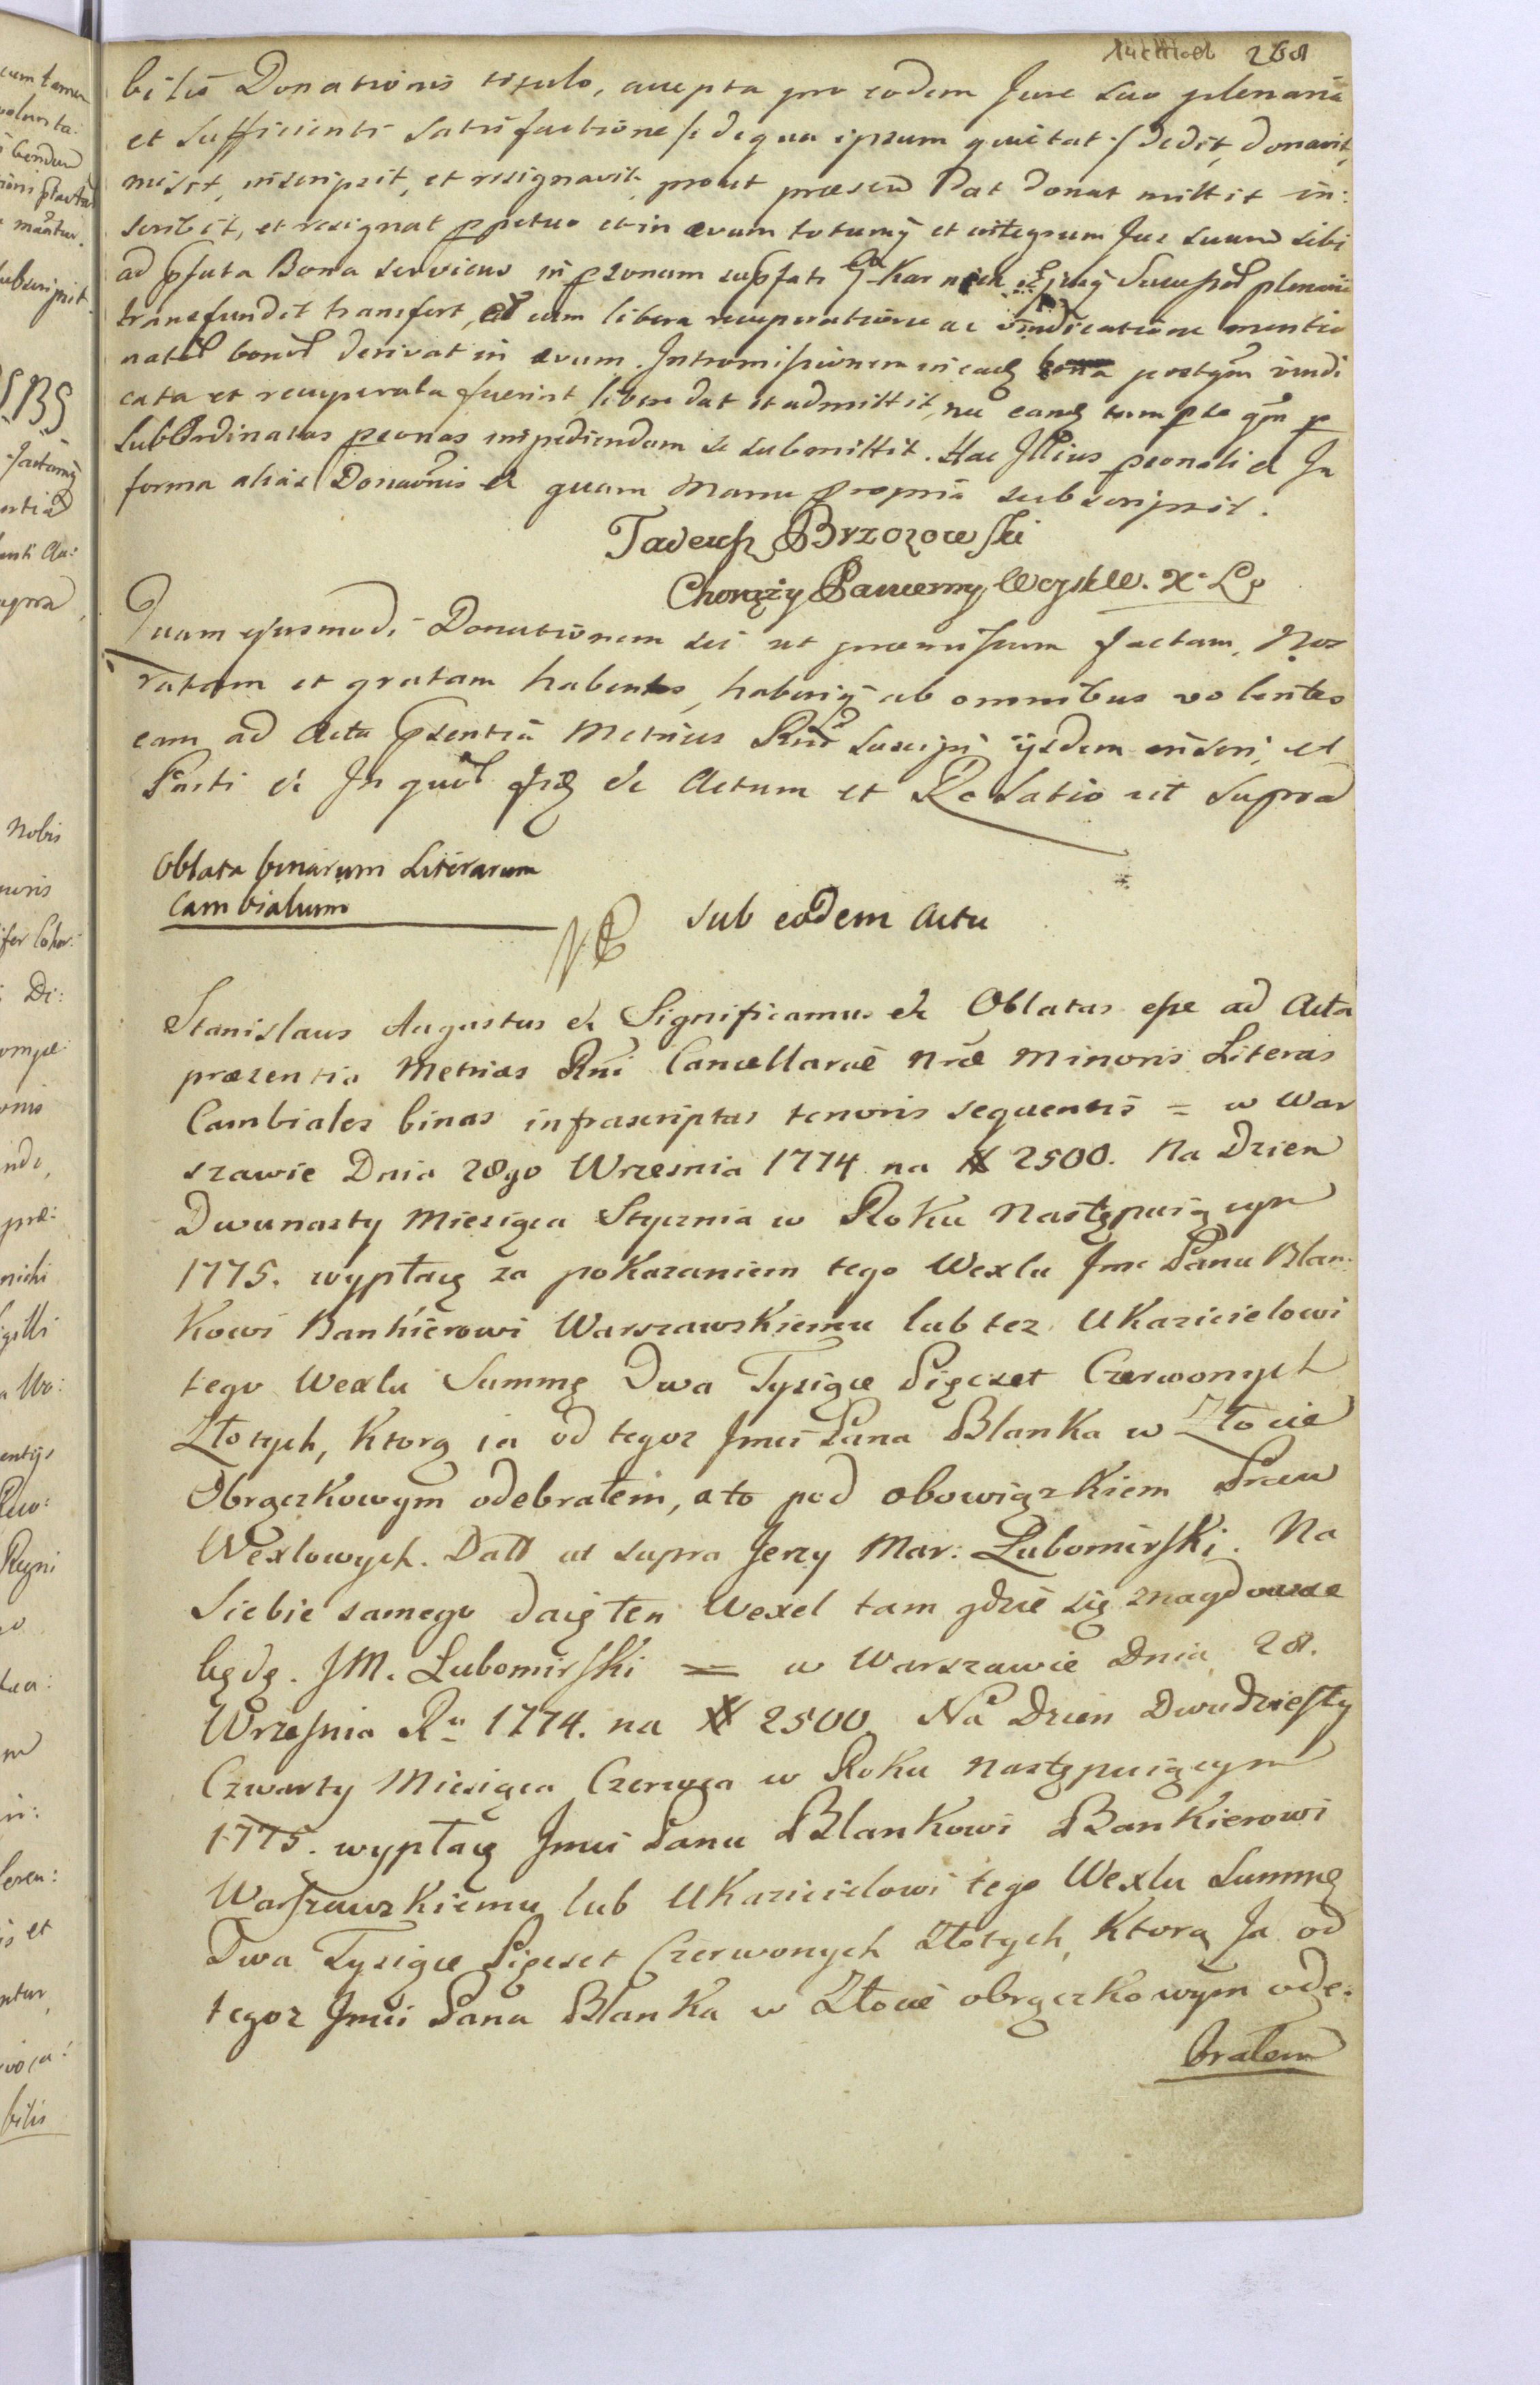 268
bilis Donationis titulo, accepta pro eodem Jure suo plenaria
et sufficienti satisfactione /: de qua ipsum quietat :/ dedit, donavit,
misit, inscripsit, et resignavit, prout praesen dat donat mittit in:
scribit, et resignat ppetuo et in aevum totumq et integrum Jus suum sibi
ad pfata Bona serviens in psonam supfati Gsi Karnicki ejusq Succes plenarie
transfundit transfert, et cum libera recuperatione ac vindicatione mentio
nator bonor derivat in aevum. Intromissionem in eadq bona postqm vindi
cata et recuperata fuerint libere dat et admittit, nec eandq tam p se qm p
subOrdinatas psonas impediendam se submittit. Hac Illius psonali et In
forma alias Donaonis et quam Manu propria subscripsit.
Tadeusz Brzozowski
Chorąży Pancerny Woysk W. X. L.
Quam ejusmodi Donationem sic ut praemissum factam, Nos
ratam et gratam habentes, haberiq ab omnibus volentes
eam ad Acta psentia Metrices Rni suscipi ijsdem inseri, et
Parti et In quor fidq et Actum et Relatio ut supra
Oblata binarum Literarum
Cambialium
NB sub eodem Actu
Stanislaus Augustus et Significamus et Oblatas esse ad Acta
praesentia Metrices Rni Cancellariae Nrae Minoris Literas
Cambiales binas infrascriptas tenoris sequentis = w War
szawie Dnia 28go Wrzesnia 1774 na # 2500. Na Dzien
Dwunasty Miesiąca Stycznia w Roku Następuiącym
1775. wypłacę za pokazaniem tego Wexlu Jmc Panu Blan:
Kowi Bankierowi Warszawskiemu lub tez Ukazicielowi
tego Wexlu Summę Dwa Tysiące Pięcset Czerwonych
Złotych, Ktorą ia od tegoz Jmci Pana Blanka w Złocie
Obrączkowym odebrałem, a to pod obowiązkiem Praw
Wexlowych. Datt ut supra Jerzy Mar: Lubomirski. Na
Siebie samego daię ten Wexel tam gdzie się znaydować
będę. JM. Lubomirski = w Warszawie Dnia 28.
Wrzesnia Ru 1774. na # 2500. Na Dzien Dwudziesty
Czwarty Miesiąca Czerwca w Roku Następuiącym
1775. wypłacę Jmci Panu Blankowi Bankierowi
Warszawskiemu lub Ukazicielowi tego Wexlu Summę
Dwa Tysiące Pięcset Czerwonych Złotych, Ktorą Ja od
tegoz Jmci Pana Blanka w Złocie obrączkowym ode:
brałem